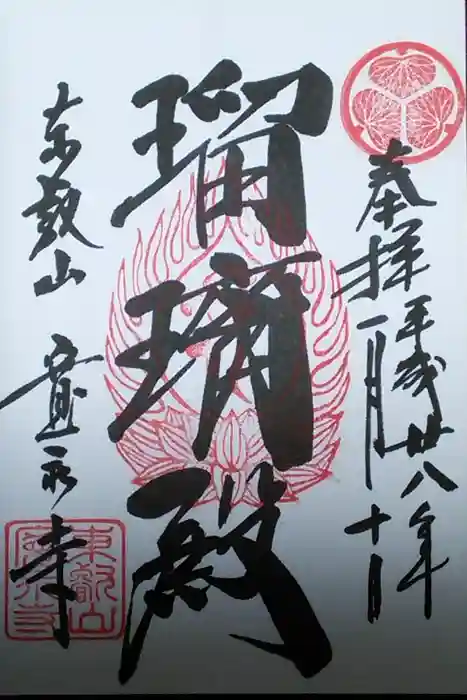 奉拝 平成廿八年
一月十日
瑠璃殿
東叡山 寛永寺
東叡山
寛永寺